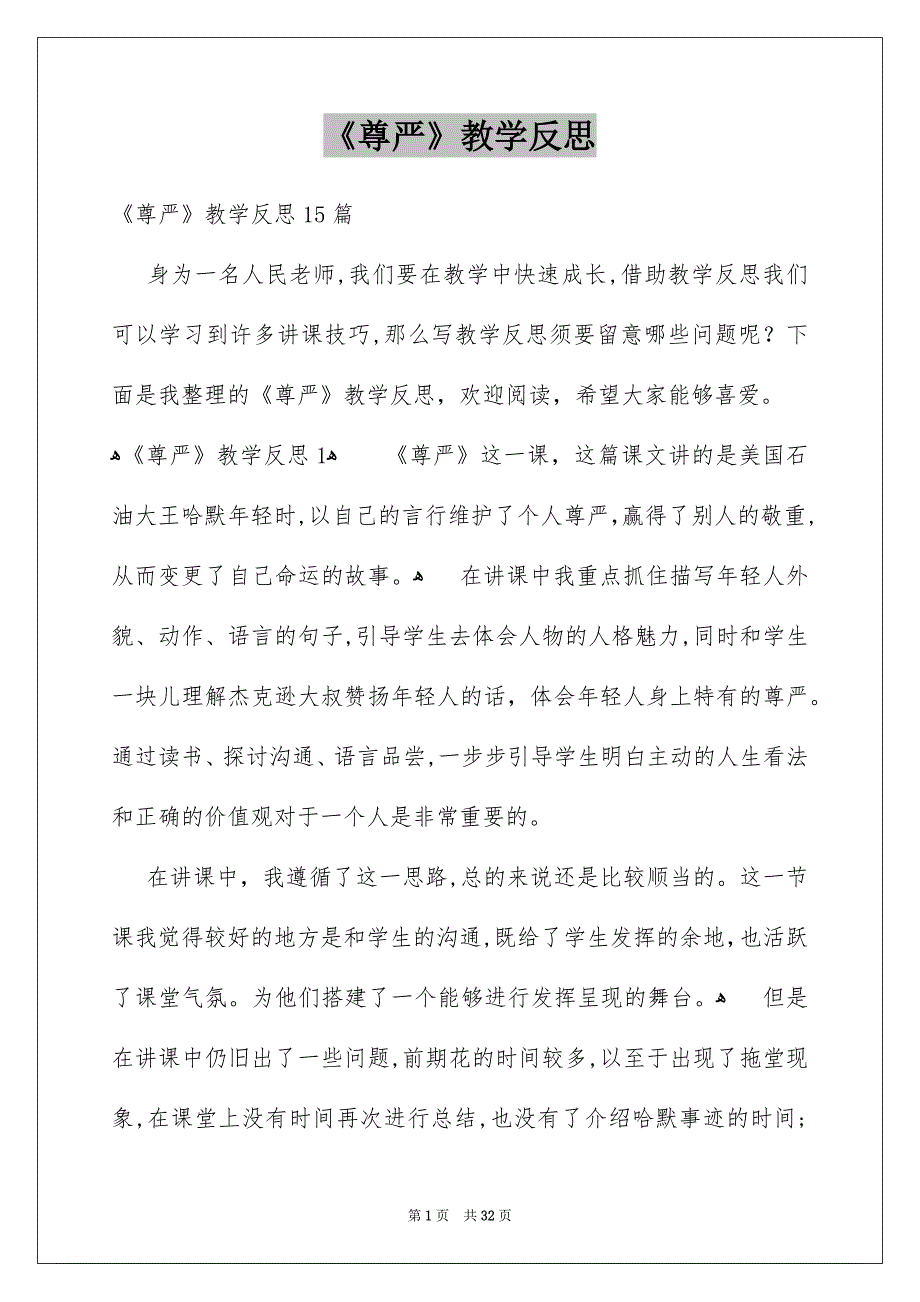 《尊严》教学反思
《尊严》教学反思 15 篇
身为一名人民老师,我们要在教学中快速成长,借助教学反思我们
可以学习到许多讲课技巧,那么写教学反思须要留意哪些问题呢？下
面是我整理的《尊严》教学反思，欢迎阅读，希望大家能够喜爱。
ﻫ《尊严》教学反思 1ﻫ　　《尊严》这一课，这篇课文讲的是美国石
油大王哈默年轻时,以自己的言行维护了个人尊严,赢得了别人的敬重,
从而变更了自己命运的故事。ﻫ　　在讲课中我重点抓住描写年轻人外
貌、动作、语言的句子,引导学生去体会人物的人格魅力,同时和学生
一块儿理解杰克逊大叔赞扬年轻人的话，体会年轻人身上特有的尊严。
通过读书、探讨沟通、语言品尝,一步步引导学生明白主动的人生看法
和正确的价值观对于一个人是非常重要的。
在讲课中，我遵循了这一思路,总的来说还是比较顺当的。这一节
课我觉得较好的地方是和学生的沟通,既给了学生发挥的余地,也活跃
了课堂气氛。为他们搭建了一个能够进行发挥呈现的舞台。ﻫ　　但是
在讲课中仍旧出了一些问题,前期花的时间较多,以至于出现了拖堂现
象,在课堂上没有时间再次进行总结,也没有了介绍哈默事迹的时间;
第 1 页　共 32 页